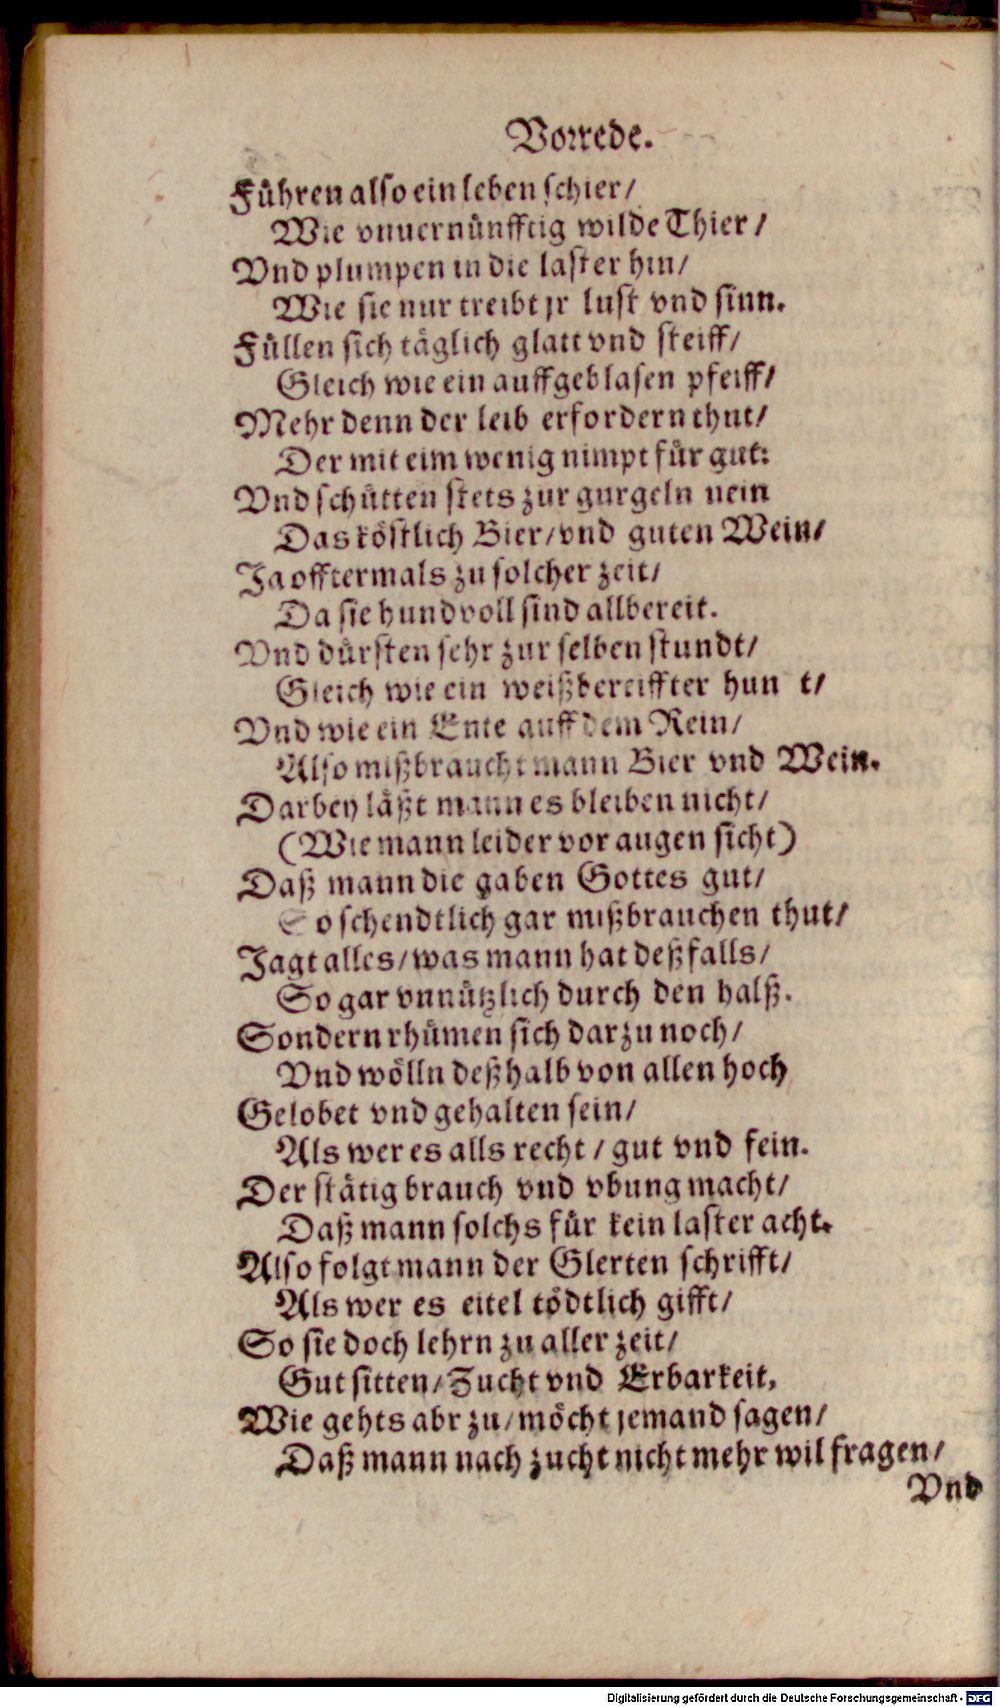 Vorrede.
Führen also ein leben schier/
Wie vnuernünfftig wilde Thier/
Vnd plumpen in die laster hin/
Wie sie nur treibt jr lust vnd sinn.
Füllen sich täglich glatt vnd steiff/
Gleich wie ein auffgeblasen pfeiff/
Mehr denn der leib erfordern thut/
Der mit eim wenig nimpt für gut:
Vnd schütten stets zur gurgeln nein
Das köstlich Bier/vnd guten Wein/
Ja offtermals zu solcher zeit/
Da sie hundvoll sind allbereit.
Vnd dürsten sehr zur selben stundt/
Gleich wie ein weißbereiffter hun t/
Vnd wie ein Ente auff dem Rein/
Also mißbraucht mann Bier vnd Wein.
Darbey läßt mann es bleiben nicht/
(Wie mann leider vor augen sicht)
Daß mann die gaben Gottes gut/
So schendtlich gar mißbrauchen thut/
Jagt alles/was mann hat deßfalls/
So gar vnnützlich durch den halß.
Sondern rhümen sich darzu noch/
Vnd wölln deßhalb von allen hoch
Gelobet vnd gehalten sein/
Als wer es alls recht/gut vnd fein.
Der stätig brauch vnd vbung macht/
Daß mann solchs für kein laster acht.
Also folgt mann der Glerten schrifft/
Als wer es eitel tödtlich gifft/
So sie doch lehrn zu aller zeit/
Gut sitten/Zucht vnd Erbarkeit,
Wie gehts abr zu/möcht jemand sagen/
Daß mann nach zucht nicht mehr wil fragen/
Vnd
Digitalisierung gefördert durch die Deutsche Forschungsgemeinschaft - DFG